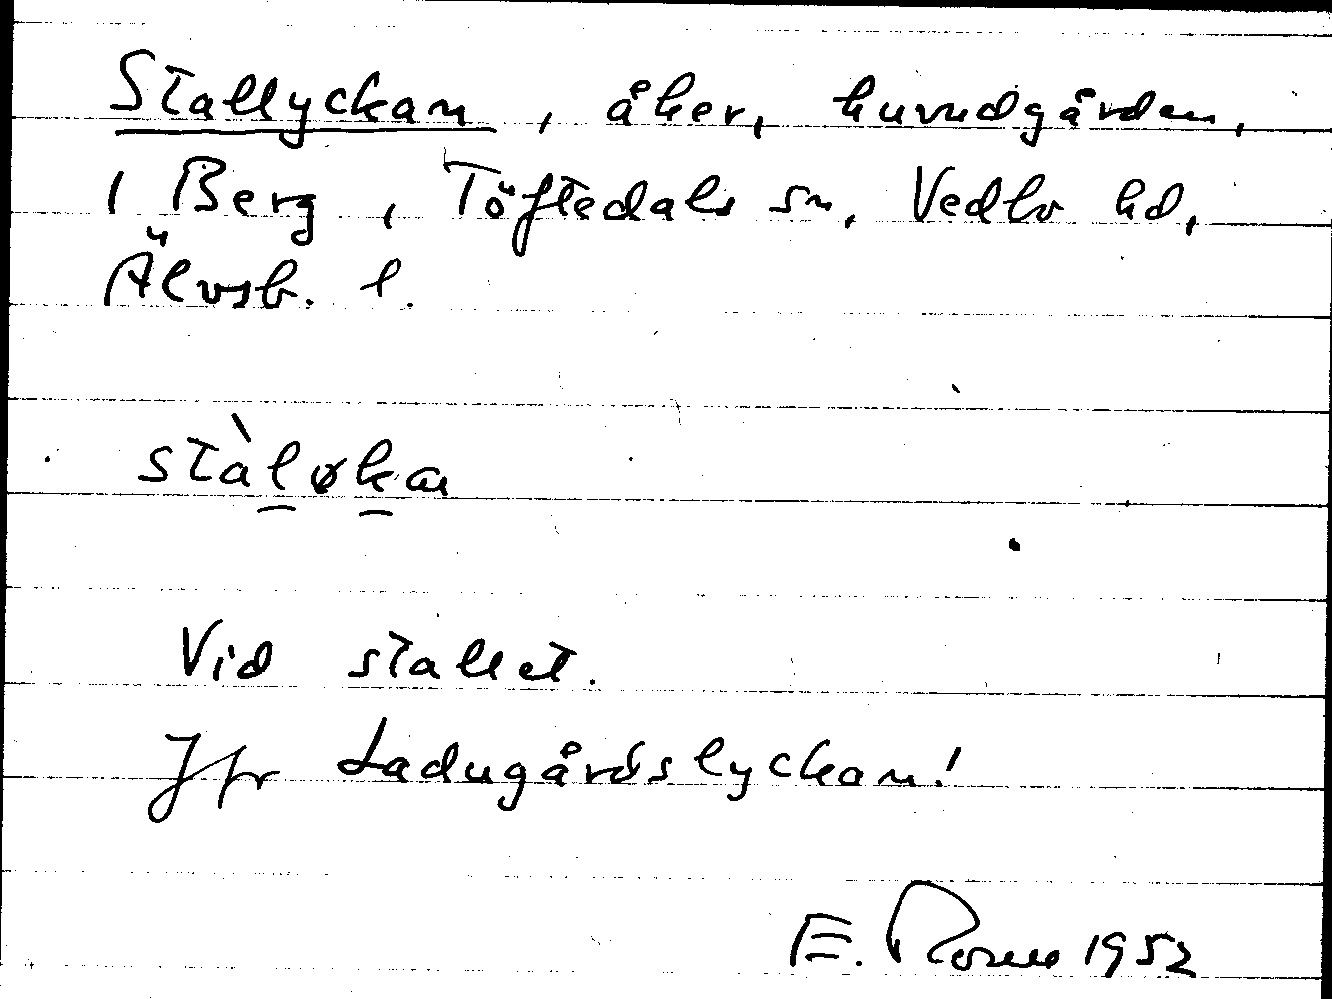 Stallyckan, åker, huvudgården,
1 Berg, Töftedals sn, Vedbo hd,
Älvsb. l.
stàløka
Vid stallet.
Jfr Ladugårdslyckan!
E. 1952